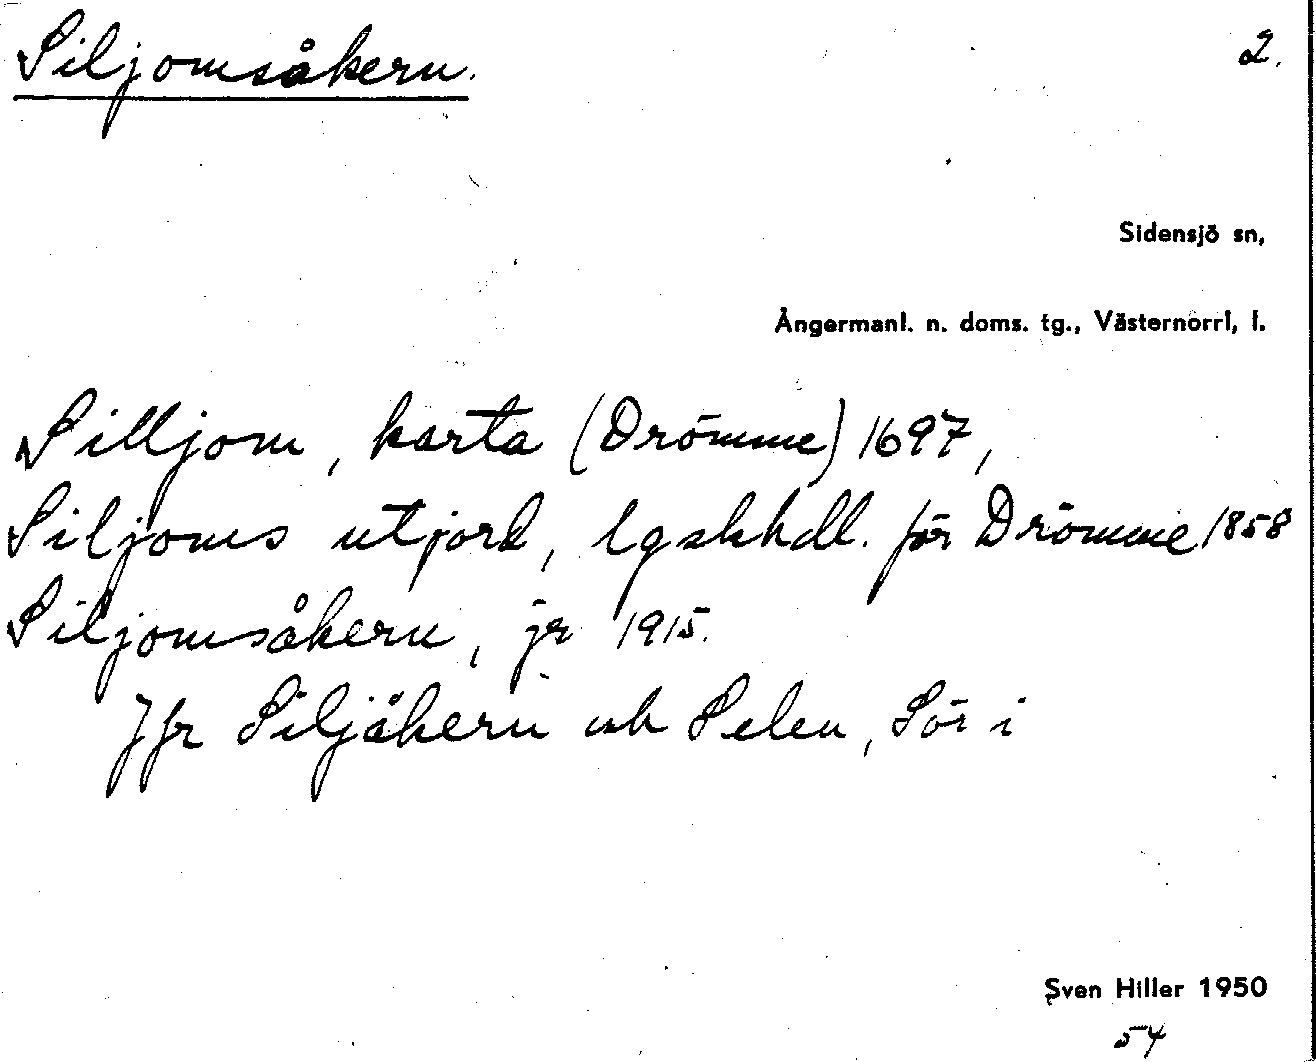 Siljomsåkern. 2.
Sidensjö sn,
Ångermanl. n. doms. tg., Västernorrl. l.
Silljom, karta (Drömme) 1697,
Siljoms utjord, lgskhdl. för Drömme 1858
Siljomsåkern, jr 1915.
Jfr Siljåkern och Selen, Sör i
Sven Hiller 1950
54